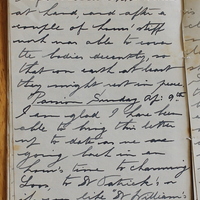 at hand, and after a
couple of hours stiff
work was able to cover
the bodies decently, so
that on earth at least
they might rest in peace.
Passion Sunday Ap. 9th.
I am glad I have been
able to bring this letter
up to date as we are
going back in an
hour's time to charming
Loos, to St Patrick's
it was like St William's